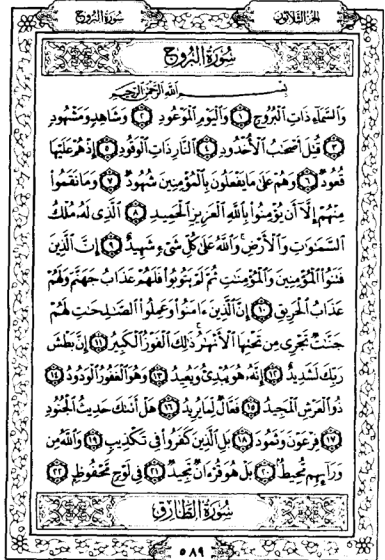 سُورَةُ البُرُوجِ
الجُزْءُ الثَّلَاثُونَ
سُورَةُ البُرُوجِ
بِسْمِ اللَّهِ الرَّحْمَٰنِ الرَّحِيمِ
وَالسَّمَآءِ ذَاتِ الْبُرُوجِ ١ وَالْيَوْمِ الْمَوْعُودِ ٢ وَشَاهِدٍ وَمَشْهُودٍ
٣ قُتِلَ أَصْحَٰبُ الْأُخْدُودِ ٤ النَّارِ ذَاتِ الْوَقُودِ ٥ إِذْ هُمْ عَلَيْهَا
قُعُودٌ ٦ وَهُمْ عَلَىٰ مَا يَفْعَلُونَ بِالْمُؤْمِنِينَ شُهُودٌ ٧ وَمَا نَقَمُوا
مِنْهُمْ إِلَّآ أَن يُؤْمِنُوا بِاللَّهِ الْعَزِيزِ الْحَمِيدِ ٨ الَّذِي لَهُ مُلْكُ
السَّمَٰوَٰتِ وَالْأَرْضِ وَاللَّهُ عَلَىٰ كُلِّ شَيْءٍ شَهِيدٌ ٩ إِنَّ الَّذِينَ
فَتَنُوا الْمُؤْمِنِينَ وَالْمُؤْمِنَٰتِ ثُمَّ لَمْ يَتُوبُوا فَلَهُمْ عَذَابُ جَهَنَّمَ وَلَهُمْ
عَذَابُ الْحَرِيقِ ١٠ إِنَّ الَّذِينَ ءَامَنُوا وَعَمِلُوا الصَّٰلِحَٰتِ لَهُمْ
جَنَّٰتٌ تَجْرِي مِن تَحْتِهَا الْأَنْهَٰرُ ذَٰلِكَ الْفَوْزُ الْكَبِيرُ ١١ إِنَّ بَطْشَ
رَبِّكَ لَشَدِيدٌ ١٢ إِنَّهُ هُوَ يُبْدِئُ وَيُعِيدُ ١٣ وَهُوَ الْغَفُورُ الْوَدُودُ ١٤
ذُو الْعَرْشِ الْمَجِيدُ ١٥ فَعَّالٌ لِّمَا يُرِيدُ ١٦ هَلْ أَتَىٰكَ حَدِيثُ الْجُنُودِ
١٧ فِرْعَوْنَ وَثَمُودَ ١٨ بَلِ الَّذِينَ كَفَرُوا فِي تَكْذِيبٍ ١٩ وَاللَّهُ مِن
وَرَآئِهِم مُّحِيطٌ ٢٠ بَلْ هُوَ قُرْءَانٌ مَّجِيدٌ ٢١ فِي لَوْحٍ مَّحْفُوظٍ ٢٢
سُورَةُ الطَّارِقِ
٥٨٩